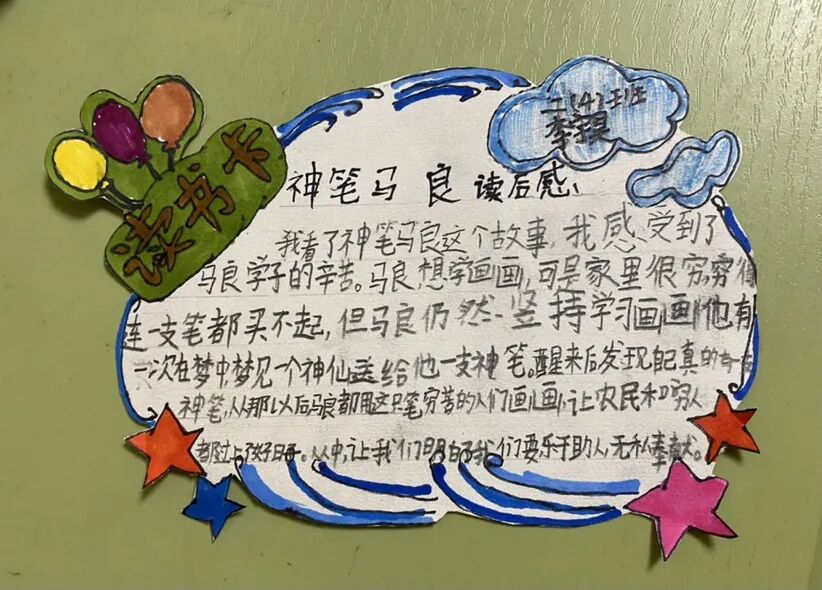 读书卡
二(4)班
神笔马良读后感
我看了神笔马良这个故事,我感受到了
马良学子的辛苦。马良想学画画,可是家里很穷,穷得
连一支笔都买不起,但马良仍然坚持学习画画,他有
一次在梦中梦见一个神仙送给他一支神笔。醒来后发现自己真的有一支
神笔,从那以后马良都用这只笔穷苦的人们画画,让农民和穷人
都过上了好日子。从中,让我们明白了我们要乐于助人,无私奉献。